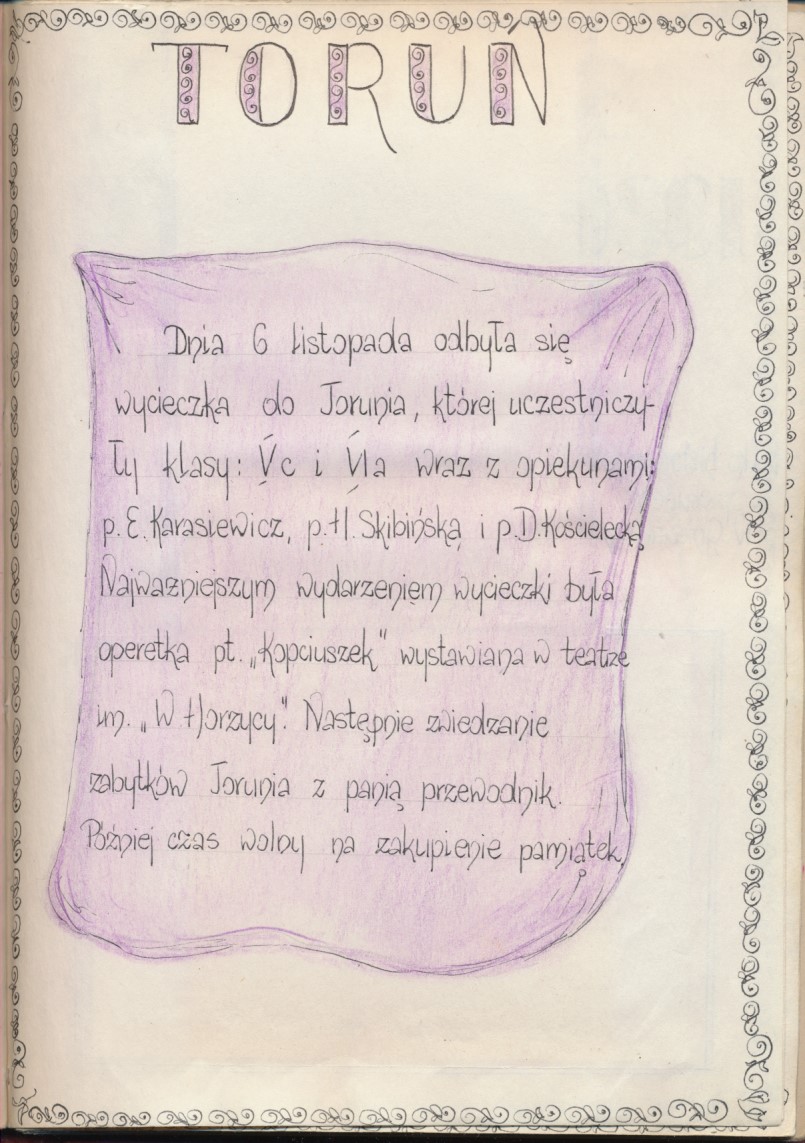 TORUŃ
Dnia 6 listopada odbyła się
wycieczka do Torunia, której uczestniczy-
ły klasy: Vc i VIa wraz z opiekunami:
p. E. Karasiewicz, p. H. Skibińską i p. D. Kościelecką
Najważniejszym wydarzeniem wycieczki była
operetka pt. „Kopciuszek" wystawiana w teatrze
im. „W Horzycy". Następnie zwiedzanie
zabytków Torunia z panią przewodnik.
Później czas wolny na zakupienie pamiątek.